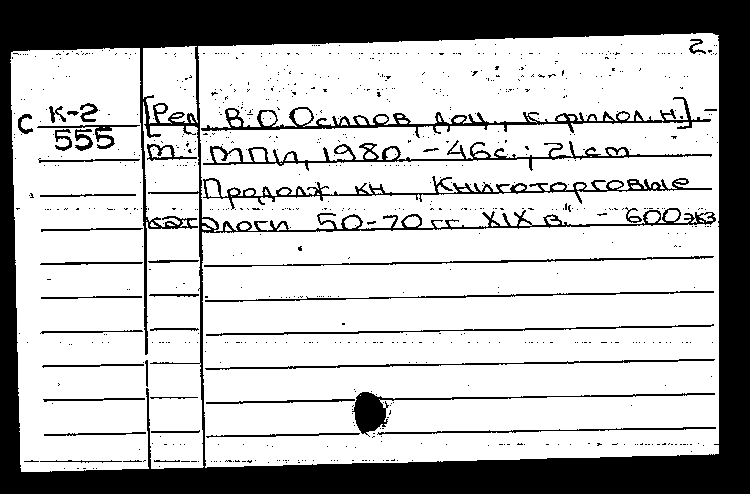 2.
С К-2
555
[Ред. В.О. Осипов, доц., к. филол. н.]. -
М.: МПИ, 1980. - 46с.; 21 cm
Продолж. кн. „Книготорговые
каталоги 50-70 гг. XIX в." - 600 экз